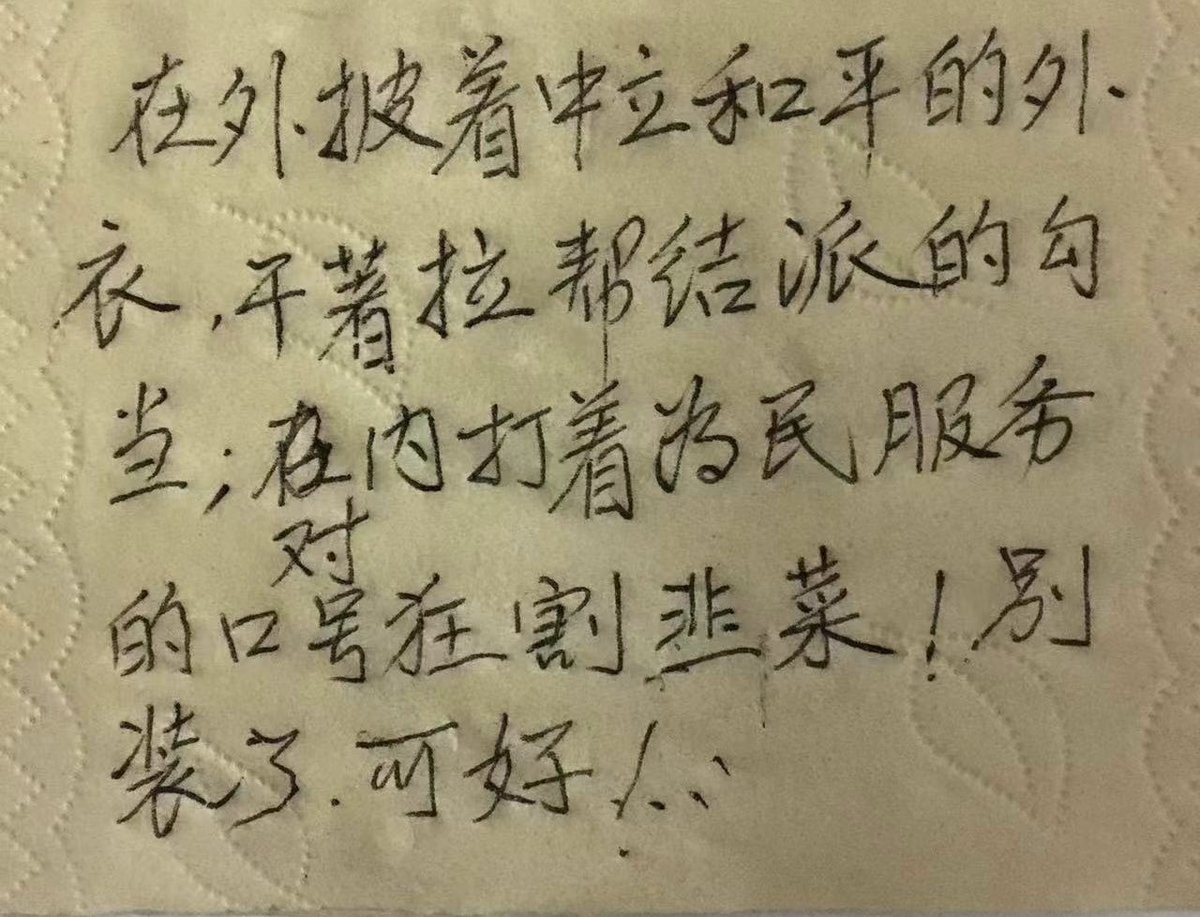 在外披着中立和平的外
衣,干著拉帮结派的勾
当;在内打着为民服务
对
的口号狂割韭菜!别
装了.可好!...